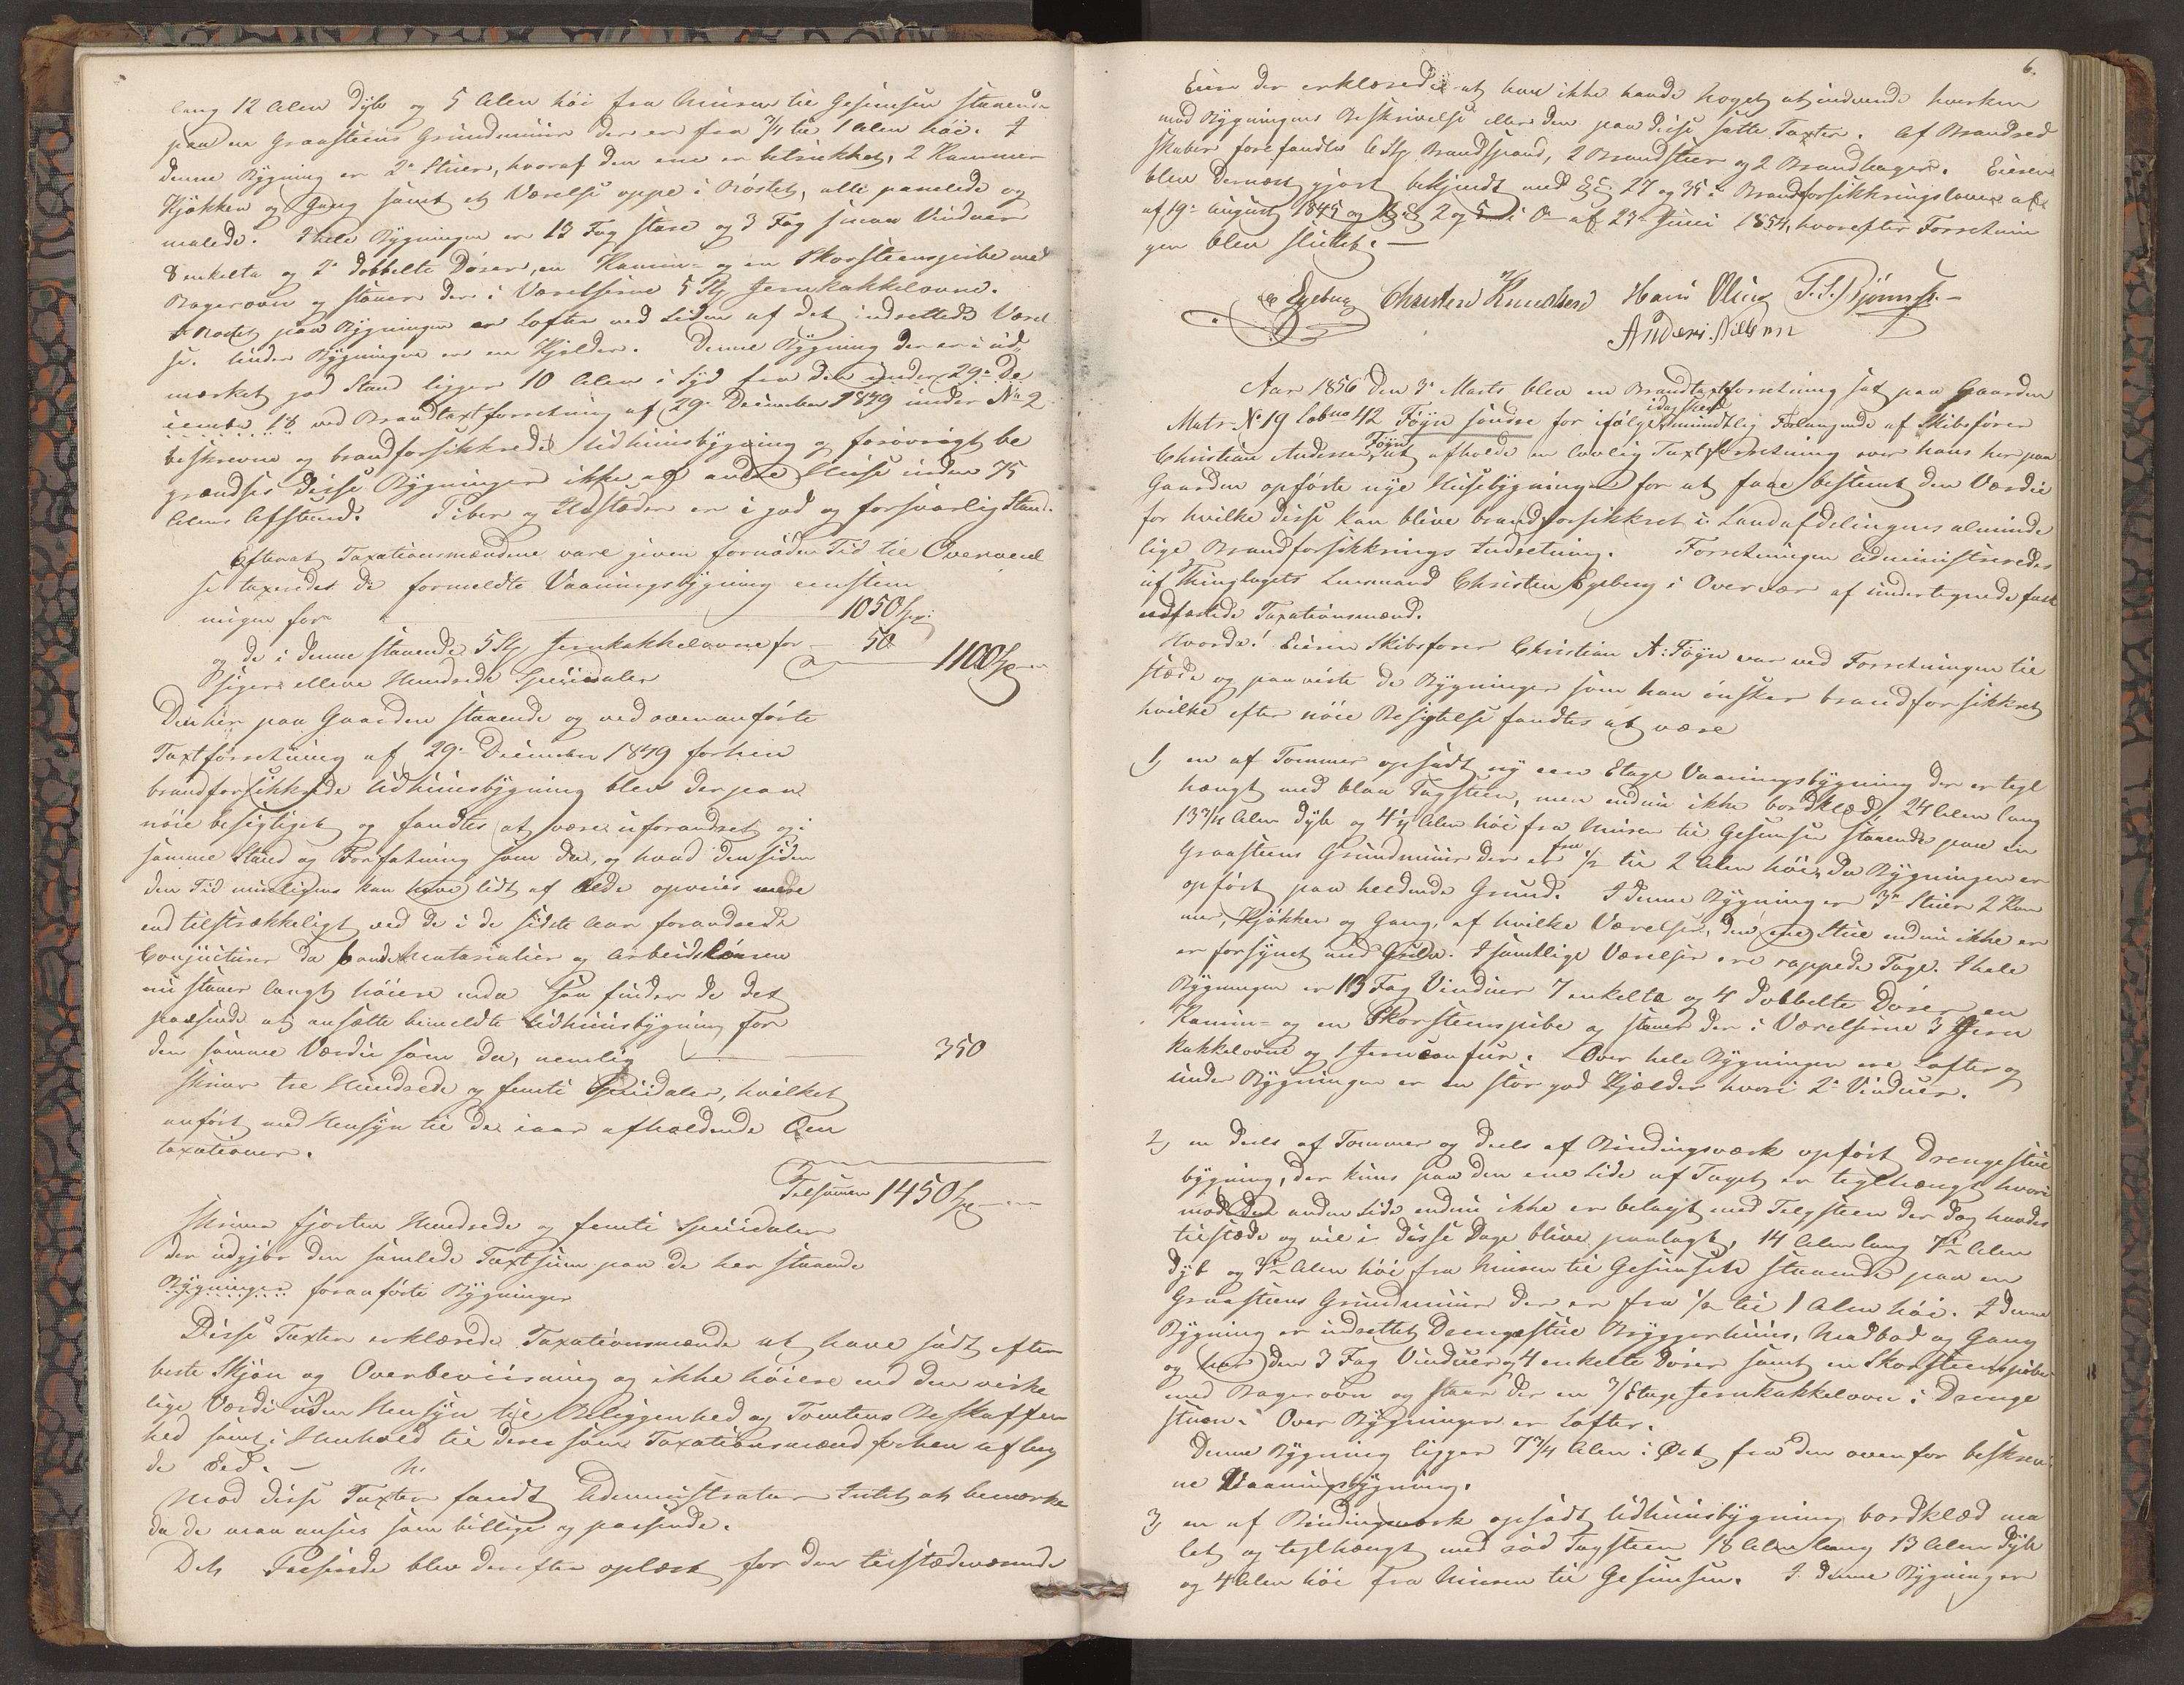 lang 12 Alen dyb og 5 Alen høi fra Muren til Gesimsen staaende
paa en Graasteens Grundmuur der er fra 3/4 til 1 Alen høi. I
denne Bygning er 2de Stuer, hvoraf den ene er betrukket, 2 Kammer
Kjøkken og Gang samt et Værelse oppe i Røstet, alle panelede og
malede. I hele Bygningen er 13 Fag store og 3 Fag smaa Vinduer
8 enkelte og 2de dobbelte Døre, en Kamin- og en Skorsteenspibe med
Bagerovn og staaer der i Værelserne 5 Stk Jernkakkelovne.
Røstet paa Bygningen er Lofter ved Siden af det indrettede Værel
se. Under Bygningen er en Kjelder. Denne Bygning der er i ud
mærket god Stand ligger 10 Alen i Syd fra den under 29de De
cember 18 ved Brandtaxtforretning af 29de December 1849 under No 2
beskrevne og brandforsikkrede Udhuusbygning og forøvrigt be
grændses disse Bygninger ikke af andre Huse inden 75
Alens Afstand. Piber og Ildsteder er i god og forsvarlig Stand.
Efterat Taxationsmændene vare given fornøden Tid til Overveiel
se taxeredes de formeldte Vaaningsbygning eenstem
migen for 1050 Spd.
og de i denne staaende 5 Stk Jernkakkelovne for 50
siger elleve Hundrede Speciedaler 1100 Sp
Den her paa Gaarden staaende og ved ovenanførte
Taxtforretning af 29de December 1849 forhen
brandforsikkrede Udhuusbygning blev derpaa
nøie besigtiget og fandtes at være uforandret og i
samme Stand og Forfatning som da, og hvad den siden
den Tid muligens kan have lidt af Ælde opveies mere
end tilstrækkeligt ved de i de sidste Aar forandrede
Conjuncturer da baade Materialier og Arbeidslønnen
nu staaer langt høiere enda saa finder de det
passende at ansætte bemeldte Udhuusbygning for
den samme Værdie som da, nemlig 350
skriver tre Hundrede og femti Speciedaler, hvilket
anført med Hensyn til de iaar afholdende Om
taxationer.
Tilsammen 1450 Sp
skriver fjorten Hundrede og femti Speciedaler
der udgjør den samlede Taxtsum paa de her staaende
Bygninger foranførte Bygninger
Disse Taxter erklærede Taxationsmændene at have sadt efter
beste Skjøn og Overbeviisning og ikke høiere end den virke
lige Værdi uden Hensyn til Beliggenhed og Tomtens Beskaffen
hed samt i Henhold til deres som Taxationsmænd forhen aflag
de Eed.
Mod disse Taxter fandt Administrator Intet at bemærke
da de maa ansees som billige og passende.
Det Passerede blev derefter oplæst for den tilstedeværende
6.
Eier der erklærede at han ikke havde noget at indvende hverken
mod Bygningens Beskrivelse eller den paa disse satte Taxter. Af Brandred
skaber forefandtes 6 Stk Brandspand, 2 Brandstier og 2 Brandhager. Eieren
blev dernæst gjort bekjendt med §§ 27 og 35 i Brandforsikkringsloven af
af 19de August 1845 og §§ 2 og 5 i Do af 23de Juni 1854, hvorefter Forretnin
gen blev sluttet.
C Egeberg Christen Knudsen Hans Olsen
Anders Nilssen
Aar 1856 den 3de Marts blev en Brandtaxtforretning sat paa Gaarden
Matr. No 19 Løbno 42 Føyn søndre for ifølge idag skeet mundtlig Forlangende af Skibsfører
Christian Andersen Føyn at afholde en lovlig Taxtforretning over hans her paa
Gaarden opførte nye Huusebygninger for at faae bestemt den Værdie
for hvilke disse kan blive brandforsikkret i Landafdelingens alminde
lige Brandforsikkrings Indretning. Forretningen administreredes
af Thinglagets Lensmand Christen Egeberg i Overvær af undertegnede fast
edfæstede Taxationsmænd.
Hvorda! Eieren Skibsfører Christian A: Føyn var ved Forretningen til
stede og paaviste de Bygninger som han ønsker brandforsikkret
hvilke efter nøie Besigtelse fandtes at være
1, en af Tømmer opsadt ny een Etage Vaaningsbygning der er tegl
hængt med blaa Tagsteen, men endnu ikke bordklæd, 24 Alen lang
13 3/4 Alen dyb og 4 1/4 Alen høi fra Muren til Gesimsen staaende paa en
Graasteens Grundmuur der er fra 1/2 til 2 Alen høi, da Bygningen er
opført paa heldende Grund. I denne Bygning er 3de Stuer 2 Kam
mer, Kjøkken og Gang, af hvilke Værelser, den ene Stue endnu ikke er
er forsynet med Gulv. I samtlige Værelser ere rappede Tage. I hele
Bygningen er 13 Fag Vinduer 7 enkelte og 4 dobbelte Døre en
Kamin- og en Skorsteenspibe og staaer der i Værelserne 3 Jern
kakkelovne og 1 Jerncomfur. Over hele Bygningen ere Lofter og
under Bygningen er en stor god Kjælder hvori 2de Vinduer.
2, en deels af Tømmer og deels af Bindingsværk opført Drengestue
bygning, der kuns paa den ene Side af Taget er teglhængt hvori
mod den anden Side endnu ikke er belagt med Teglsteen der dog havdes
tilstede og vil i disse Dage blive paalagt, 14 Alen lang 7 1/2 Alen
dyb og 3 1/2 Alen høi fra Muren til Gesimsen staaende paa en
Graasteens Grundmuur der er fra 1/2 til 1 Alen høi. I denne
Bygning er indrettet Drengestue Bryggerhuus, Madbod og Gang
og har den 3 Fag Vinduer og 4 enkelte Døre samt en Skorsteenspibe
med Bagerovn og staaer der en Etage Jernkakkelovn i Drenge
stuen. Over Bygningen er Lofter.
Denne Bygning ligger 7 3/4 Alen i Øst fra den ovenfor beskrev
ne Vaaningsbygning.
3, en af Bindingsværk opsadt Udhuusbygning bordklæd ma
let og teglhængt med rød Tagsteen 18 Alen lang 13 Alen dyb
og 4 Alen høi fra Muren til Gesimsen. I denne Bygning er